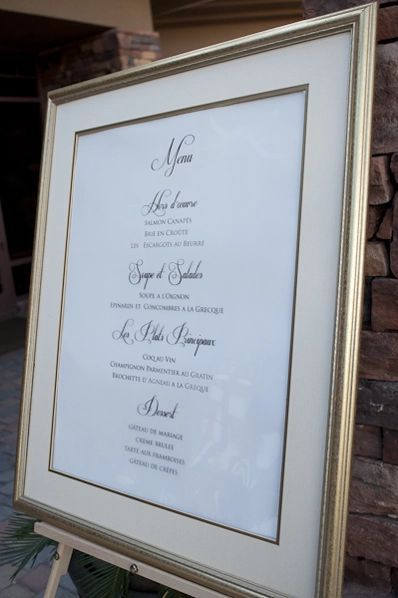 Menu
Hors d'œuvre
Salmon Canapés
Brie en Croûte
Les Escargots au Beurré
Soupe et Salades
Soupe a l'Oignon
Epinarin et Concombres a la Grecque
Les Plats Principaux
Coq au Vin
Champignon Parmentier au Gratin
Brochette d'Agneau a la Grecque
Dessert
Gâteau de Mariage
Creme Brulee
Tarte aux Framboises
Gâteau de Crêpes